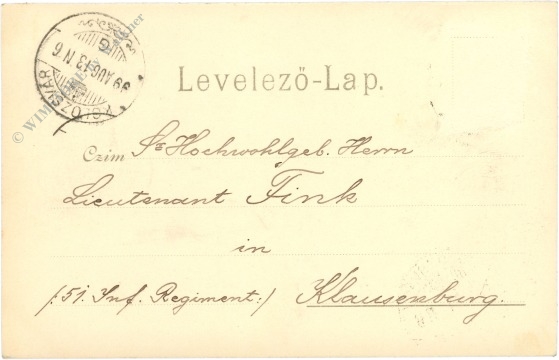 KOLOZSVÁR
99 AUG 13 N 6
© WIM
Levelező-Lap.
Czim Sr Hochwohlgeb. Herrn
Lieutenant Fink
in
/:51. Inf. Regiment:/ Klausenburg.